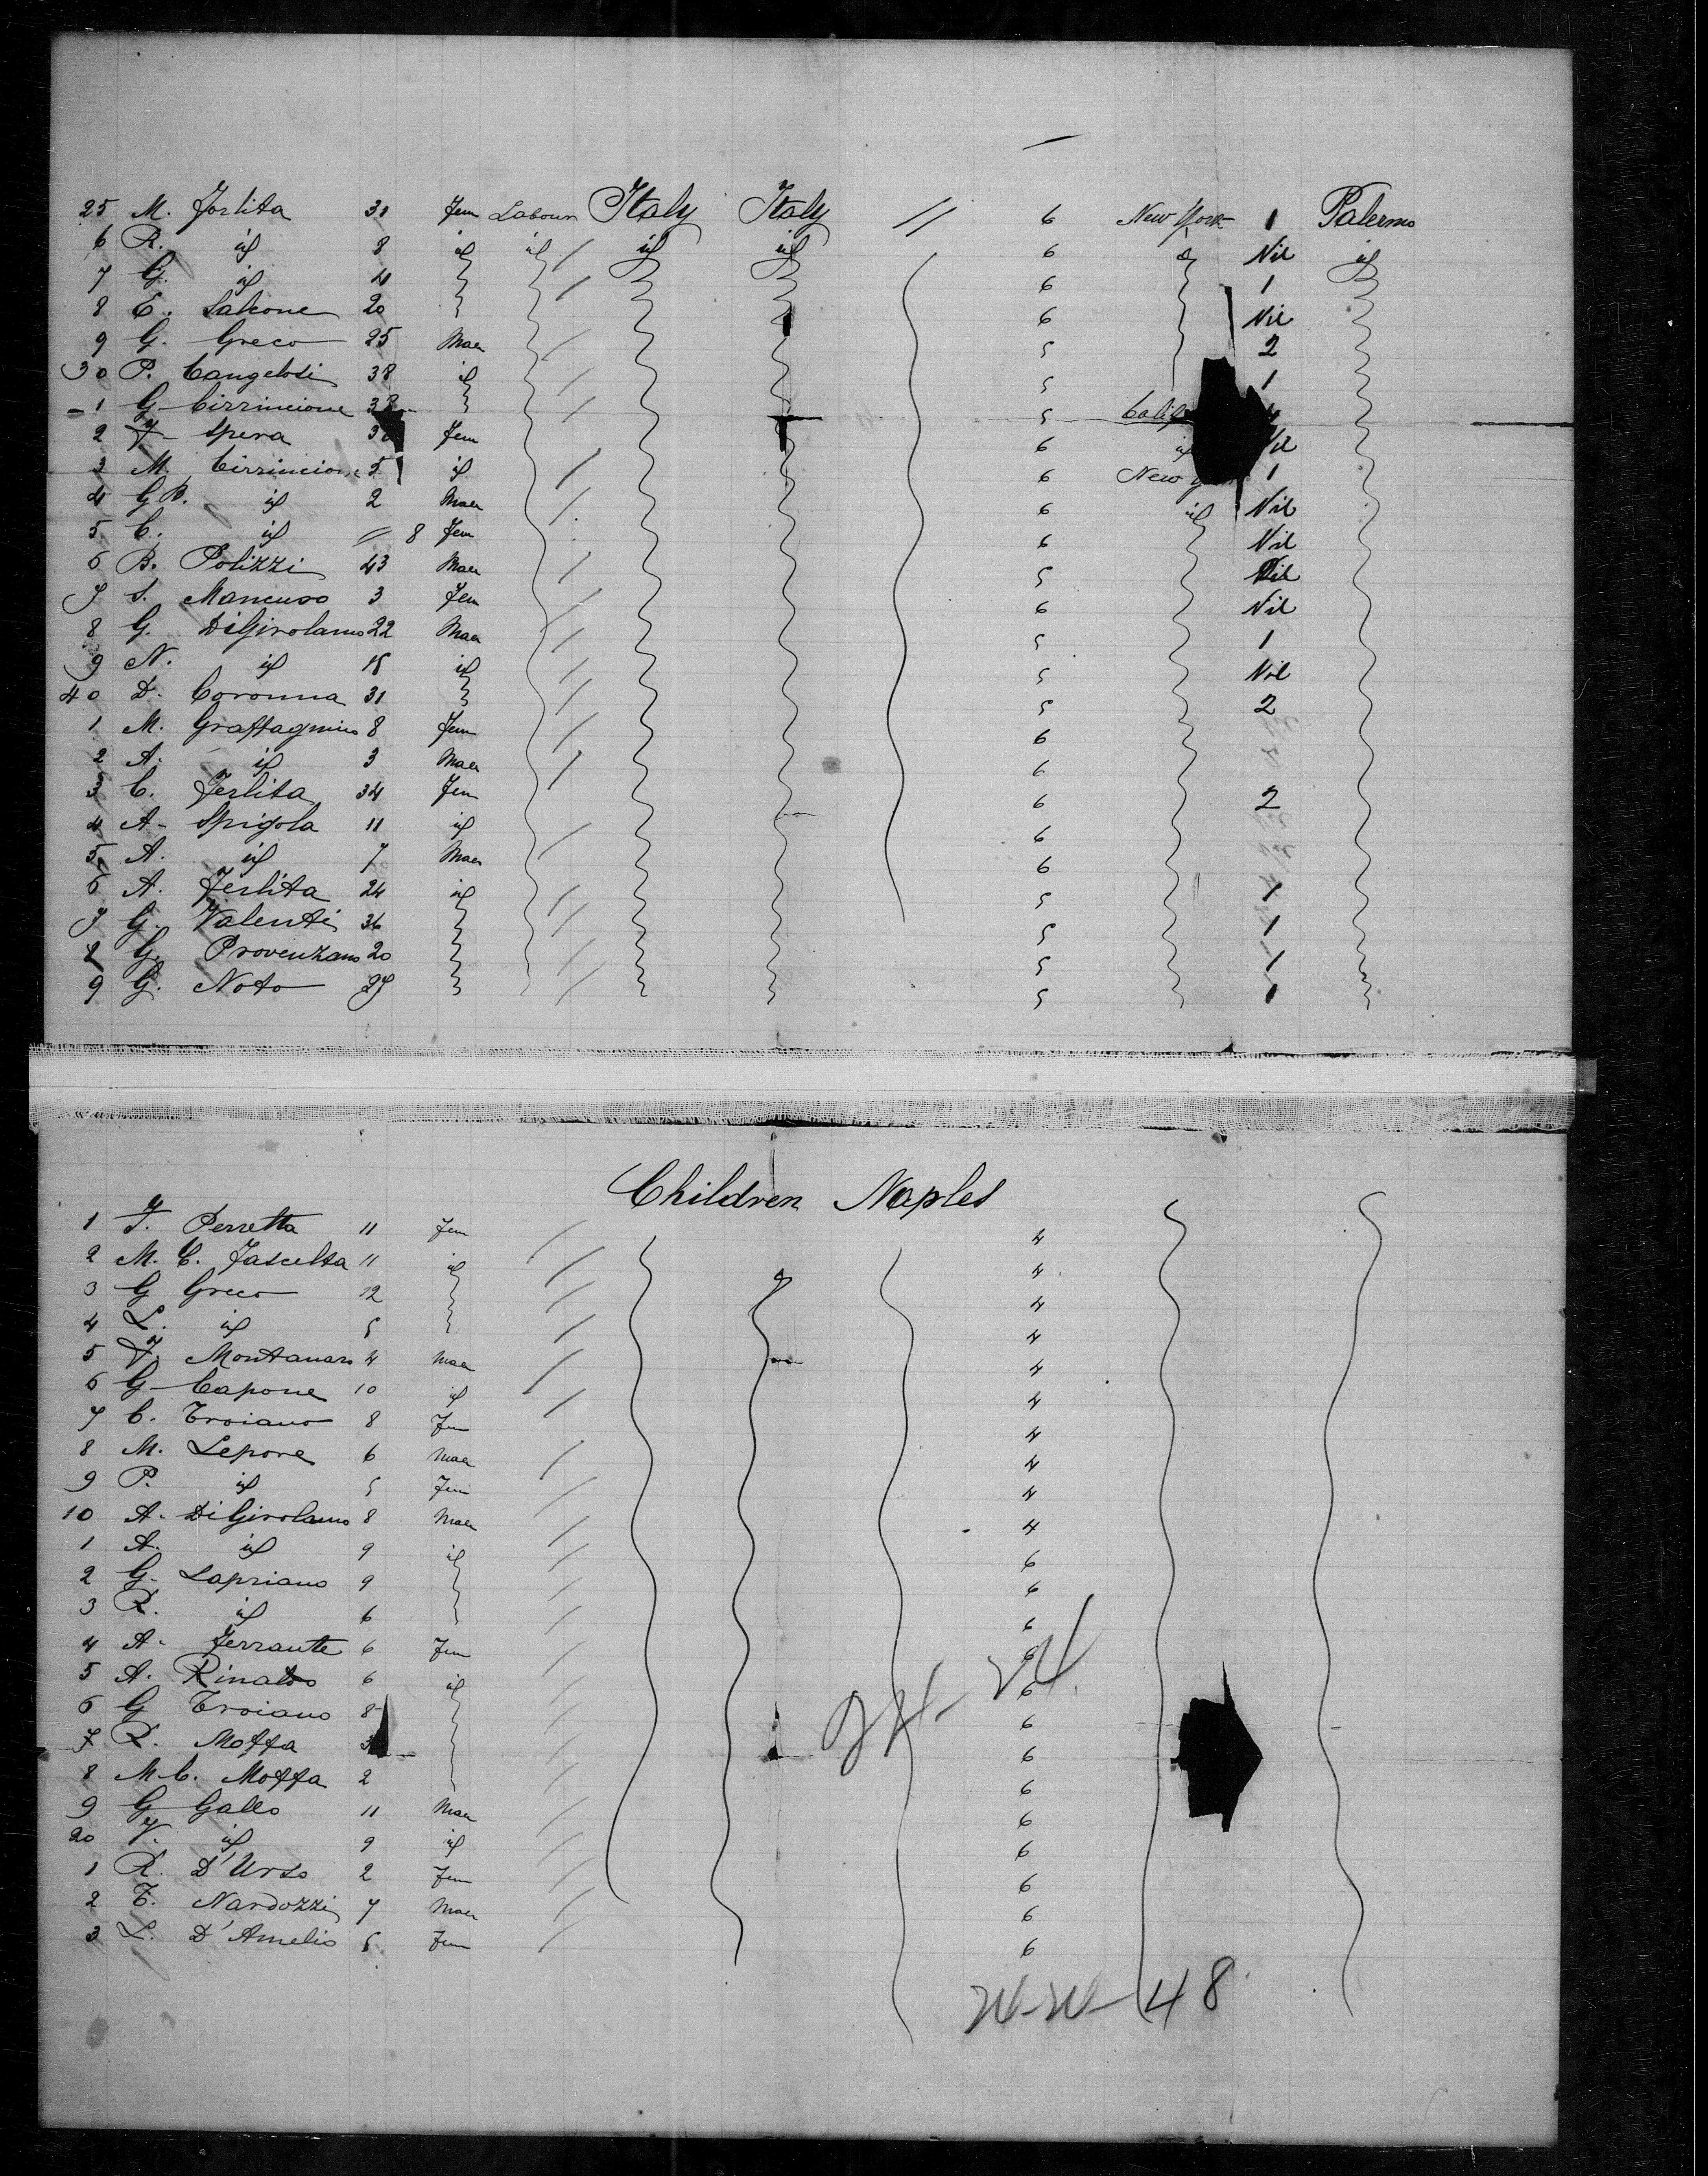 25 M. Forlita 31 Fem Labour Italy Italy // 6 New York 1 Palermo
6 R. id 8 id id / id id 6 id Nil id
7 G. id 4 / 6 1
8 E. Salcone 20 6 Nil
9 G. Greco 25 Male / 5 2
30 P. Cangelosi 38 id / 5 1
1 G Cirrincione / 5 Calif
2 F Spera Fem 6 id
3 M. Cirrincione 5 id / 6 New 1
4 G.B. id 2 Male / 6 id Nil
5 C. id // 8 Fem 6 Nil
6 B. Polizzi 43 Male / 5 Nil
7 S. Mancuso 3 Fem / 6 Nil
8 G. DiGirolamo 22 Male / 5 1
9 N. id 18 id / 5 Nil
40 D. Coronna 31 / 5 2
1 M. Graffagnino 8 Fem / 6
2 A. id 3 Male / 6
3 C. Ferlita 34 Fem 6 2
4 A. Spigola 11 id / 6
5 A. id 7 Male / 6
6 A. Ferlita 24 id // 5 1
7 G. Valenti 36 // 5 1
8 G. Provenzano 20 // 5 1
9 G. Noto 27 // 5 1
Children Naples
1 F. Perretta 11 Fem / 4
2 M. C. Fascelta 11 id / 4
3 G Greco 12 / 4
4 L. id 5 / 4
5 F. Montanaro 4 Male / 4
6 G Capone 10 id / 4
7 C. Troiano 8 Fem 4
8 M. Lepore 6 Male / 4
9 P. id 5 Fem / 4
10 A. DiGirolamo 8 Male / 4
1 A. id 9 id / 6
2 G. Lapriano 9 / 6
3 R. id 6 / 6
4 A. Ferrante 6 Fem / 6
5 A. Rinaldo 6 id / 6
6 G Troiano 8 / 6
7 R. Moffa 3 / 6
8 M.C. Moffa 2 / 6
9 G Gallo 11 Male / 6
20 V. id 9 id / 6
1 R. D'Urso 2 Fem / 6
2 T. Nardozzi 7 Male / 6
3 L. D'Amelio 5 Fem / 6
24 - 24
48